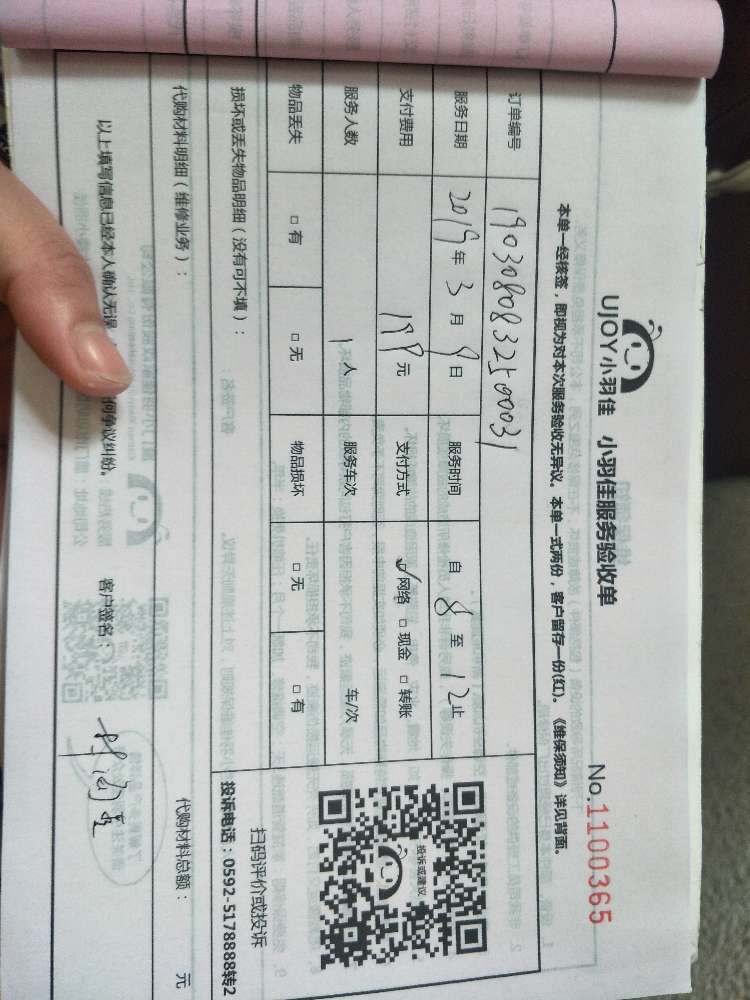 UJOY小羽佳 小羽佳服务验收单
No.1100365
本单一经核签，即视为对本次服务验收无异议。本单一式两份，客户留存一份(红)。《维保须知》详见背面。
订单编号 19030808325 00031
服务日期 2019年3月9日 服务时间 自8至12止
支付费用 元 支付方式 ☑网络 □现金 □转账
服务人数 1人 服务车次 车/次
物品丢失 □有 □无 物品损坏 □无 □有
损坏或丢失物品明细（没有可不填）：
投诉或建议
扫码评价或投诉
投诉电话：0592-5178888转2
代购材料明细（维修业务）： 代购材料总额： 元
以上填写信息已经本人确认无误， 何争议纠纷。 客户签名：